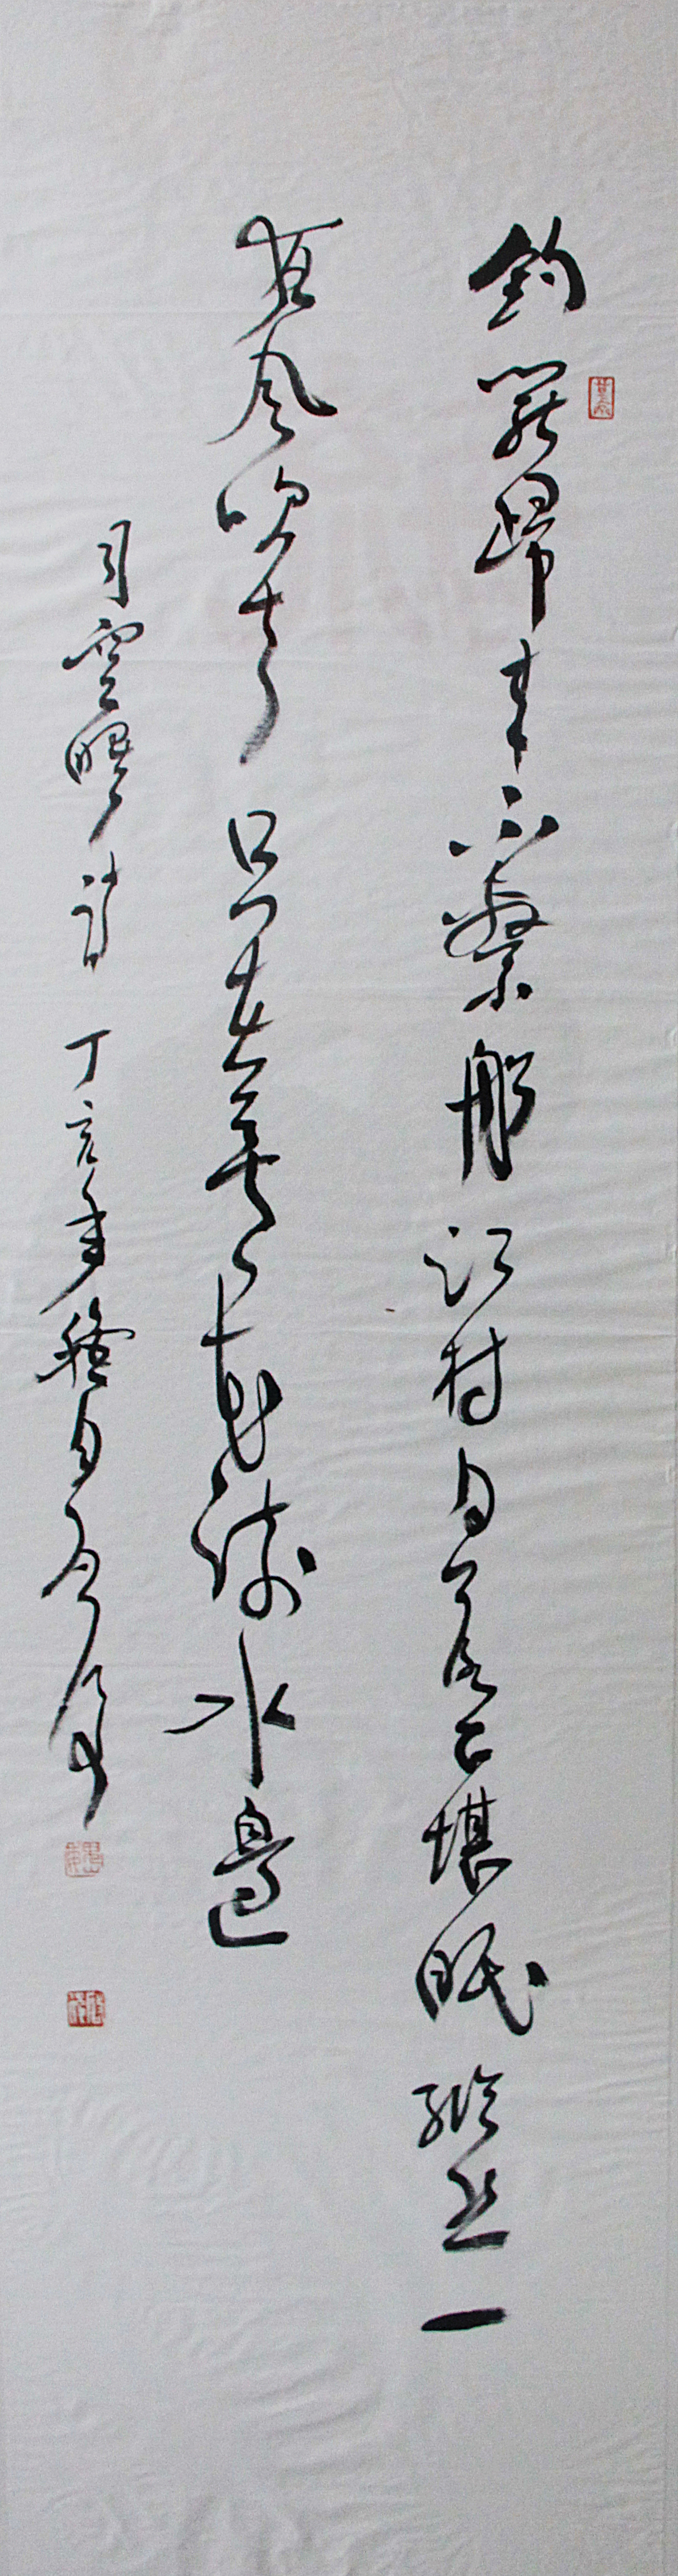 釣罷歸来不繫船江村月落正堪眠縱然一
夜風吹去只在蘆花淺水邊
司空曙詩丁亥年月